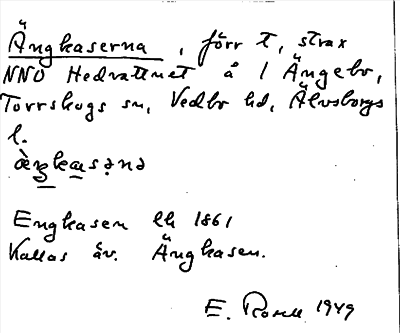 Ängkaserna, förr t, strax
NNO Hedvattnet å / Ängebo,
Torrskogs sn, Vedbo hd, Älvsborgs
l.
Engkasen lk 1861
Kallas äv. Ängkasen.
E. 1949